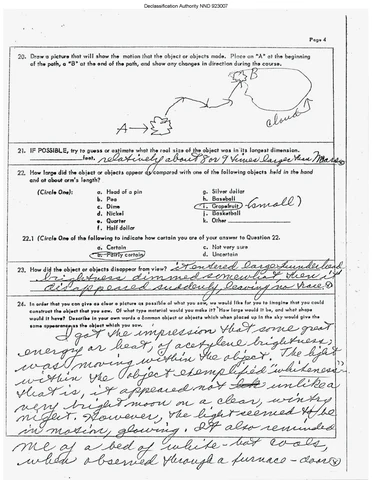 Declassification Authority NND 923007
Page 4
20. Draw a picture that will show the motion that the object or objects made. Place an "A" at the beginning
of the path, a "B" at the end of the path, and show any changes in direction during the course.
B
A
cloud
21. IF POSSIBLE, try to guess or estimate what the real size of the object was in its longest dimension.
feet. relatively about 8 or 9 times larger than Mars
22. How large did the object or objects appear as compared with one of the following objects held in the hand
and at about arm's length?
(Circle One): a. Head of a pin g. Silver dollar
b. Pea h. Baseball
c. Dime i. Grapefruit (small)
d. Nickel j. Basketball
e. Quarter k. Other
f. Half dollar
22.1 (Circle One of the following to indicate how certain you are of your answer to Question 22.
a. Certain c. Not very sure
b. Fairly certain d. Uncertain
23. How did the object or objects disappear from view? it entered large thunderhead
brightness dimmed somewhat then it
disappeared suddenly, leaving no trace.
24. In order that you can give as clear a picture as possible of what you saw, we would like for you to imagine that you could
construct the object that you saw. Of what type material would you make it? How large would it be, and what shape
would it have? Describe in your own words a common object or objects which when placed up in the sky would give the
same appearance as the object which you saw.
I got the impression that some great
energy or heat, of acetylene brightness,
was moving within the object. The light
within the object exemplified "whiteness"
that is, it appeared not unlike a
very bright moon on a clear, wintry
night. However, the light seemed to be
in motion, glowing. It also reminded
me of a bed of white-hot coals,
when observed through a furnace-door